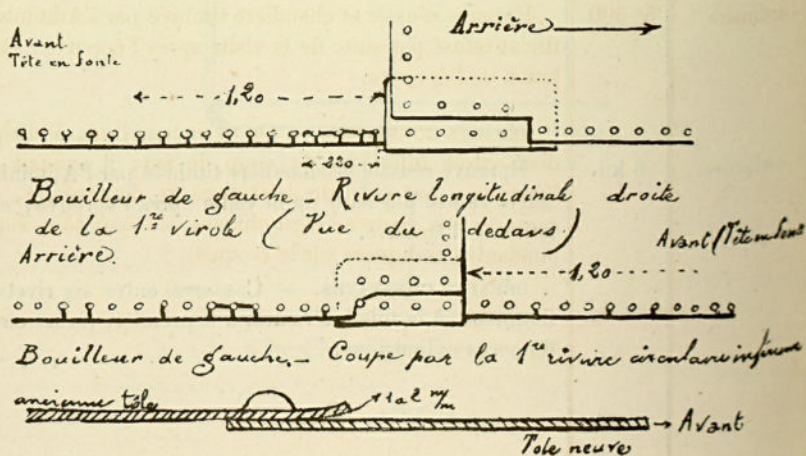 Arrière
Avant
Tête en fonte
1,20
220
Bouilleur de gauche _ Rivure longitudinale droite
de la 1re virole (Vue du dedans)
Arrière.
Avant (Tête en fonte
1,20
Bouilleur de gauche. _ Coupe par la 1re rivure circulaire inférieure
ancienne tôle
1 a 2 m/m
Avant
Tole neuve